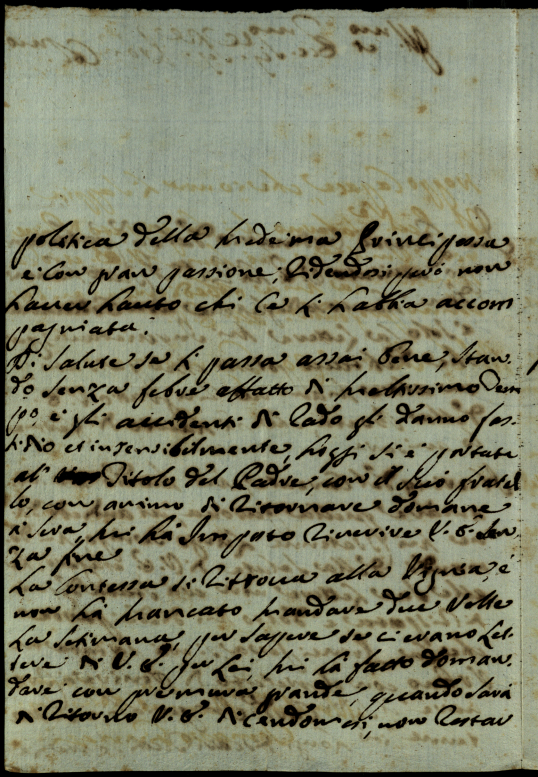 politica della medesima Principessa
e con gran passione, ridendosi però non
haver hauto chi ce li habbia accom
pagniata.
Di salute se li passa assai bene, stan
do senza febre affatto di moltissimo tem
po, e gli accidenti di rado gli danno fas
tidio et insensibilmente, hoggi si è portata
al Titolo del Padre, con il suo fratel
lo, con animo di ritornare domane
a sera, mi hà Imposto riverire V. S. sen
za fine
La Contessa si ritrova alla Vignia, é
non hà mancato mandare due volte
La setimana, per sapere se ci erano Let
tere di V. S. per Lei, mi hà fatto doman
dare con premura grande, quando sarà
di ritorno V. S. dicendomi, non restar